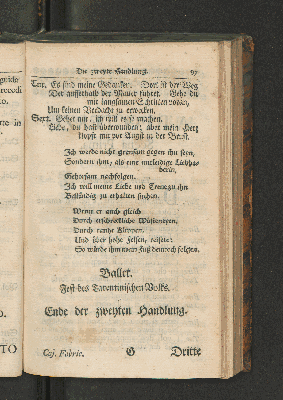 Die zweyte Handlung. 97
Tur. Es sind meine Gedancken. Dort ist der Weg
Der ausserhalb der Mauer führet. Gehe du
mit langsamen Schritten voran,
Um keinen Verdacht zu erwecken.
Sext. Gehet nur, ich will es so machen.
Liebe, du hast überwunden; aber mein Hertz
klopft mir vor Angst in der Brust.
Ich werde nicht grausam gegen ihn seyn,
Sondern ihm, als eine mitleidige Liebha-
berin,
Gehorsam nachfolgen.
Ich will meine Liebe und Treue zu ihm
Beständig zu erhalten suchen.
Wenn er auch gleich
Durch erschröckliche Wüsteneyen,
Durch rauhe Klippen,
Und über hohe Felsen, reisete:
So würde ihm mein Fuß dennoch folgen.
Ballet.
Fest des Tarentinischen Volks.
Ende der zweyten Handlung.
Caj. Fabric. G Dritte
guido
rte in
TO